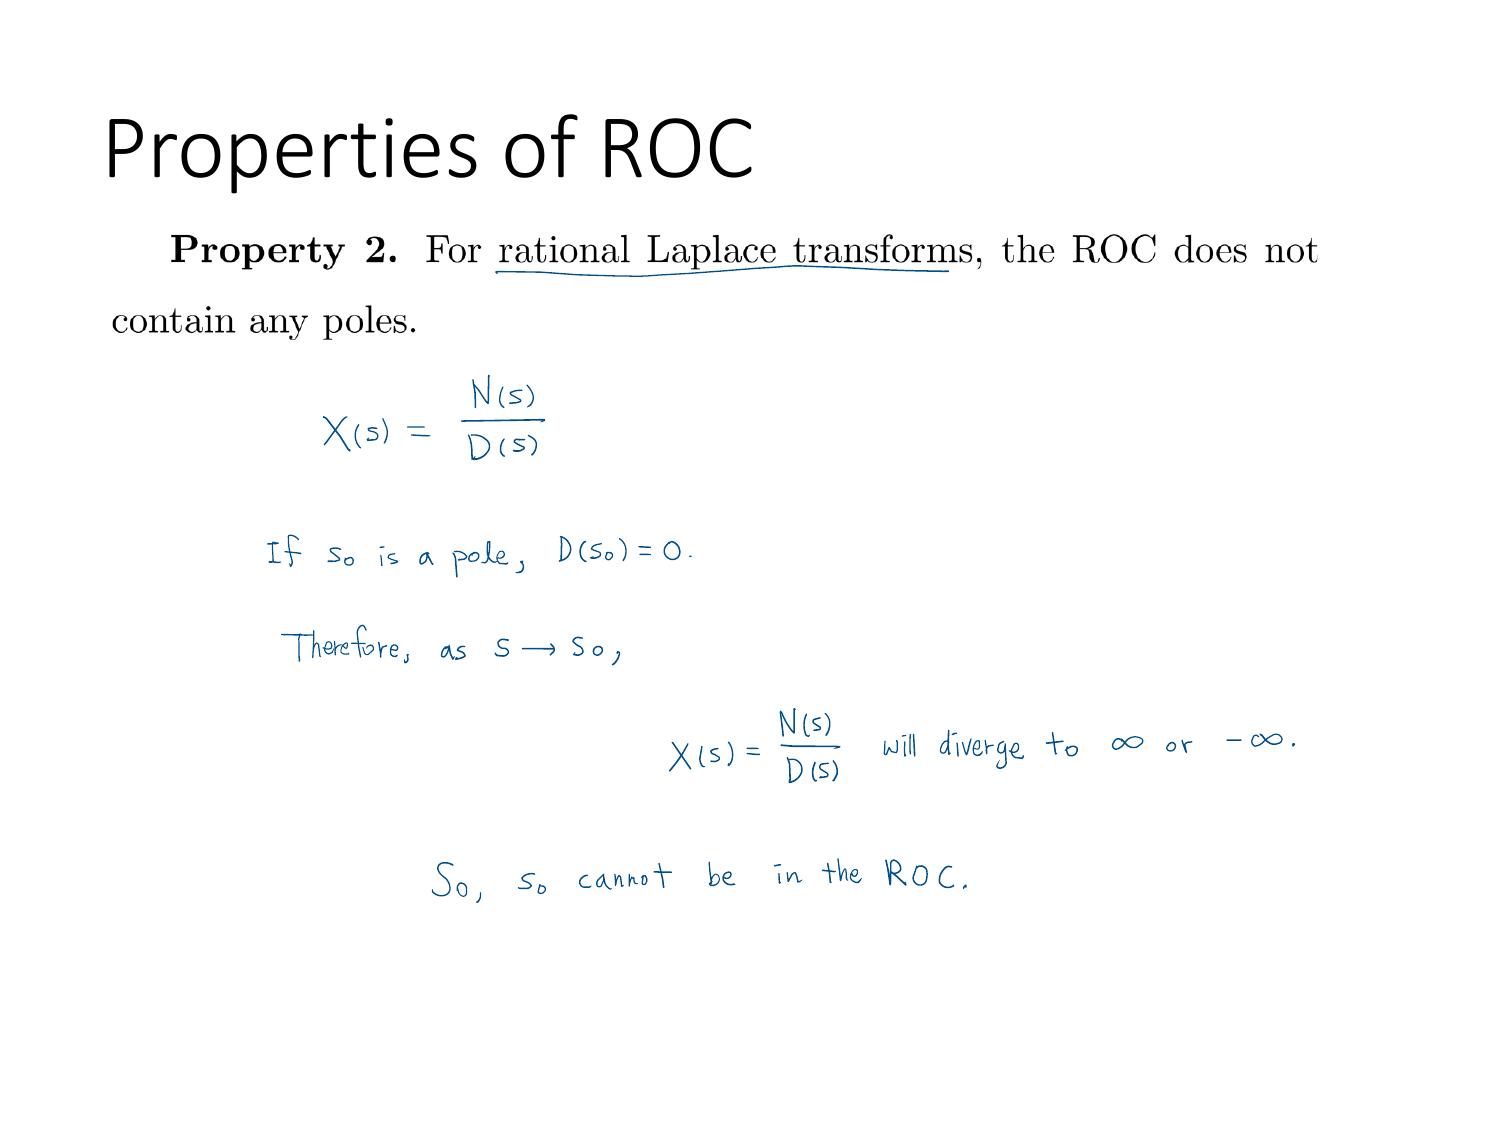 Properties of ROC
Property 2. For rational Laplace transforms, the ROC does not
contain any poles.
X(s) = N(s) / D(s)
If s₀ is a pole, D(s₀) = 0.
Therefore, as s → s₀,
X(s) = N(s) / D(s) will diverge to ∞ or -∞.
So, s₀ cannot be in the ROC.